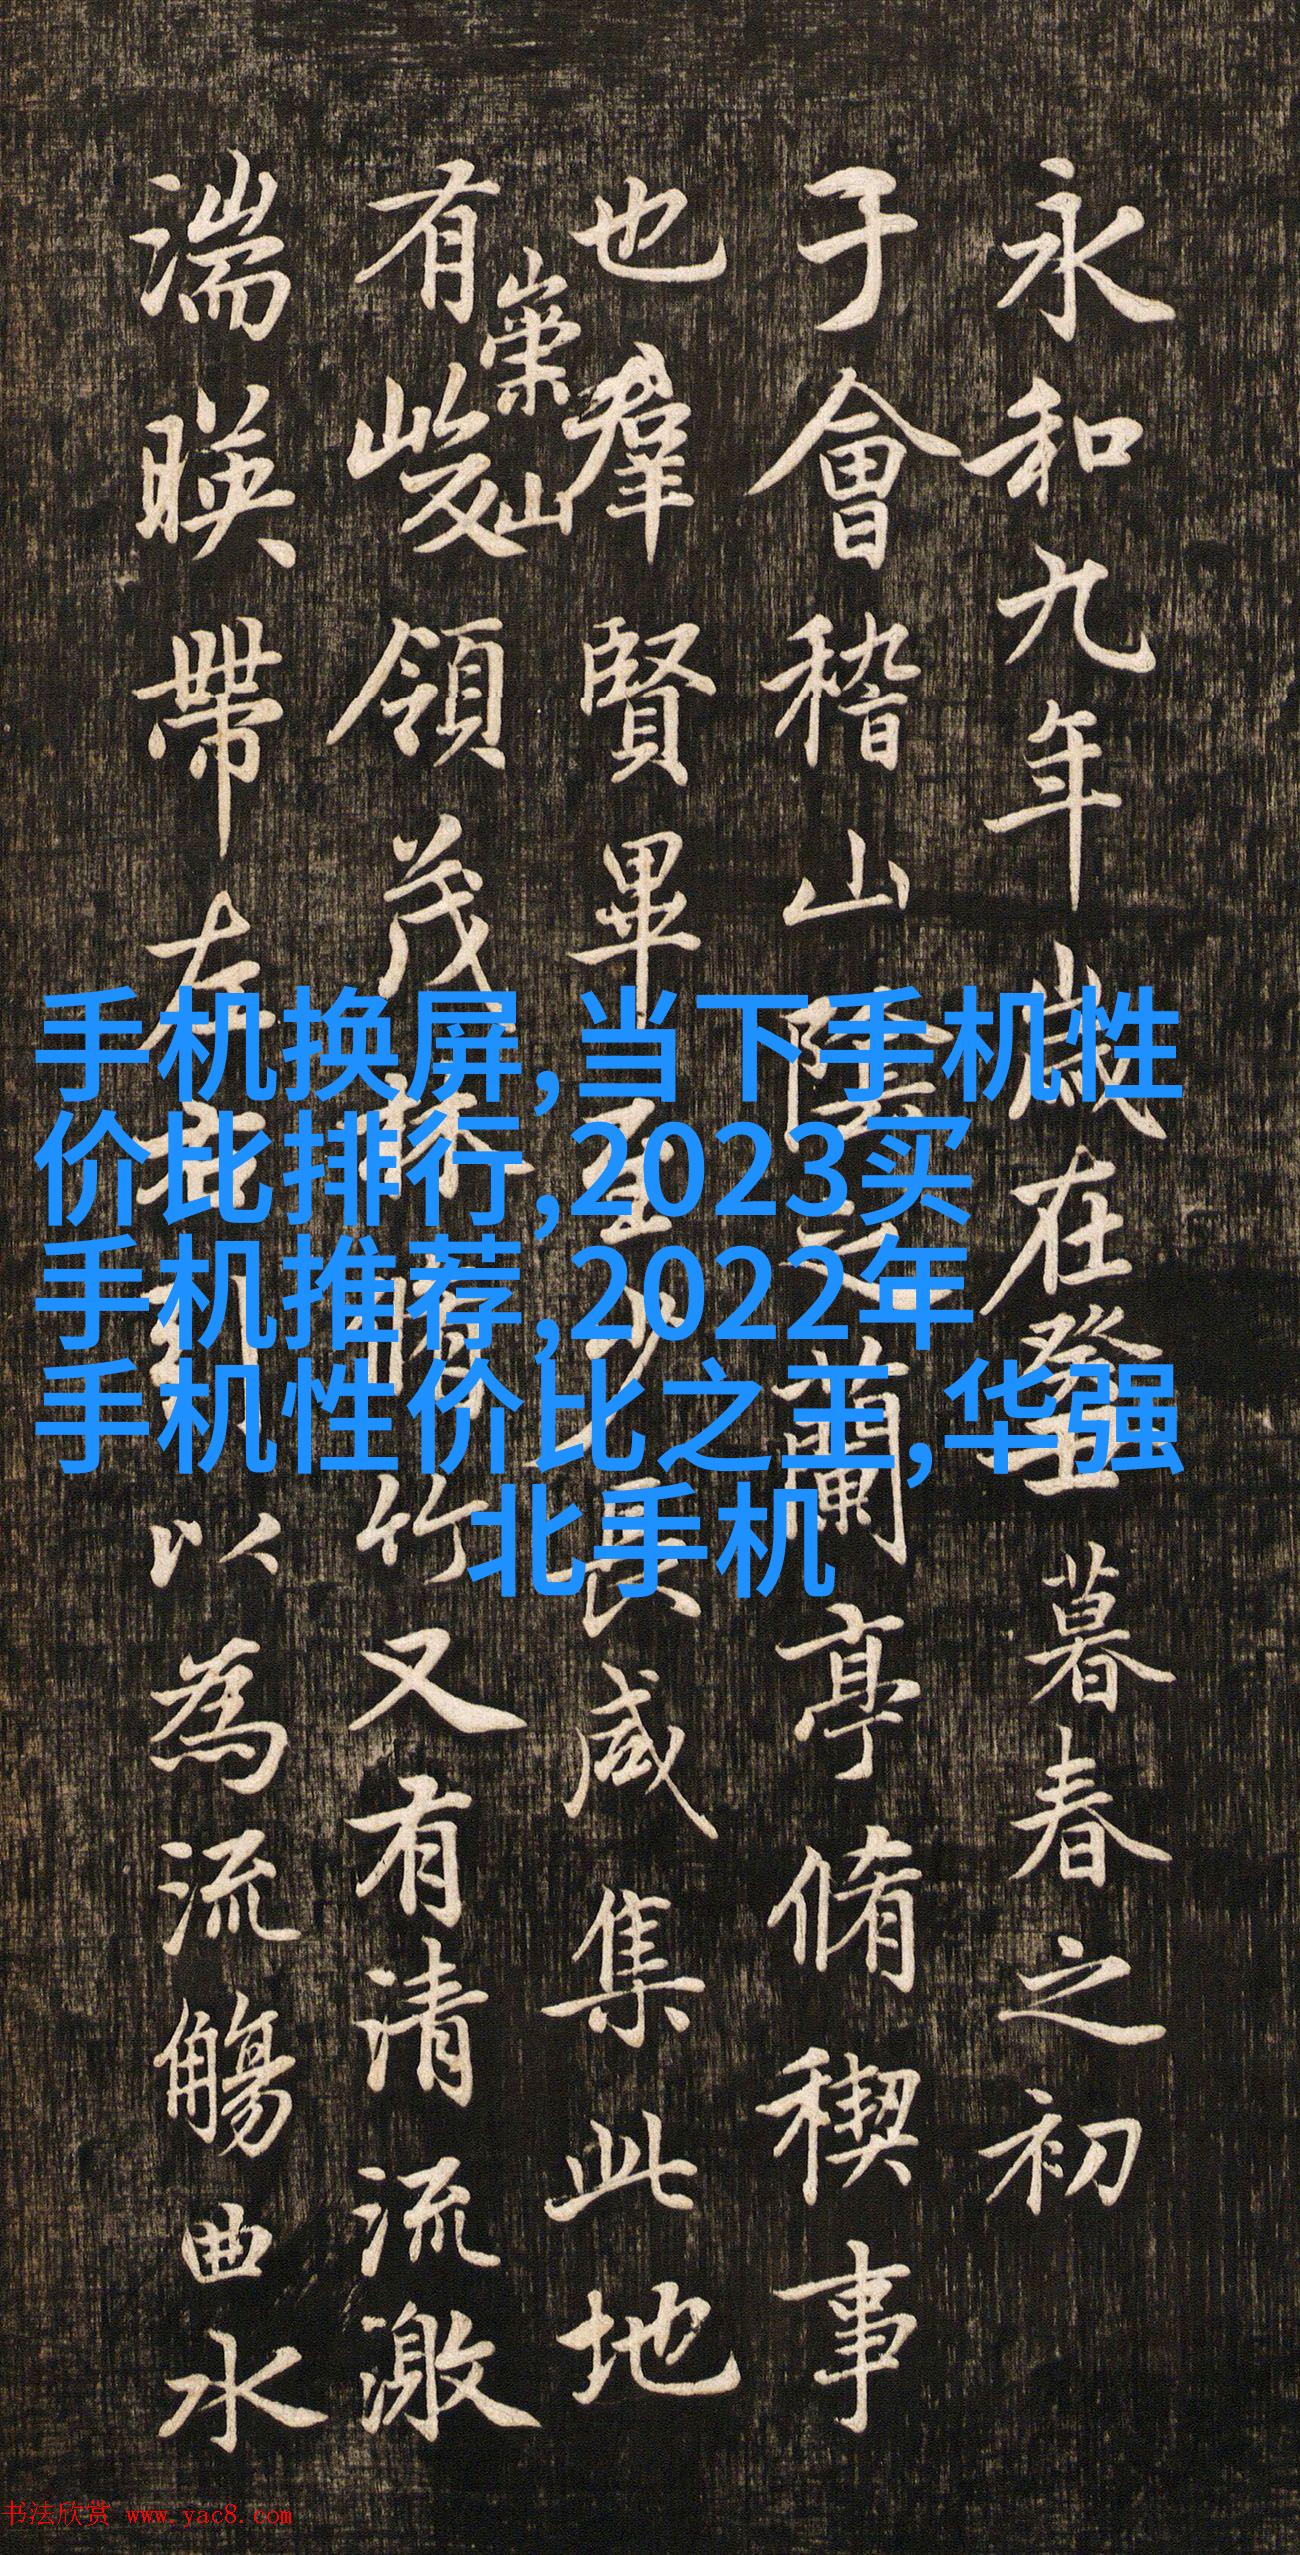 永和九年歲在癸丑暮春之初
于會稽山陰之蘭亭脩稧事
也羣賢畢至少長咸集此地
有崇山峻領茂林脩竹又有清流激
湍暎帶左右引以為流觴曲水
手机换屏,当下手机性
价比排行,2023买
手机推荐,2022年
手机性价比之王,华强
北手机
书法欣赏 www.yac8.com